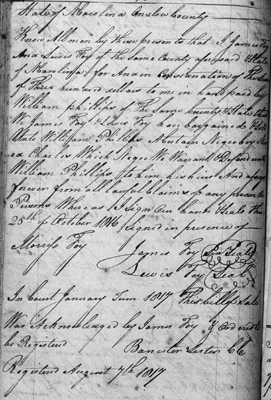 State of N Carolina Onslow County
Know All men by these presents that I James Foy
And Lewis Foy of the Same County aforesaid State
of N Carolina for And in Consideration of the Sum
of Three hundred dollars to me in hand paid by
William Phillips of the Same County & State
We James Foy & Lewis Foy has bargained & Sold
William Phillips A Certain Negro boy
Charles Which Negro We Warrant & defend unto
William Phillips to him his heirs And assigns
forever from all lawful Claims of any person or
Persons Whereas I Sign Our hands & Seals this
25th of October 1816 Signed in presence of
Morris Foy
James Foy Seal
Lewis Foy Seal
In Court January Term 1817 This bill of Sale
Was Acknowledged by James Foy & Ordered to
be Registered
Banester Lester CC
Registered August 7th 1817